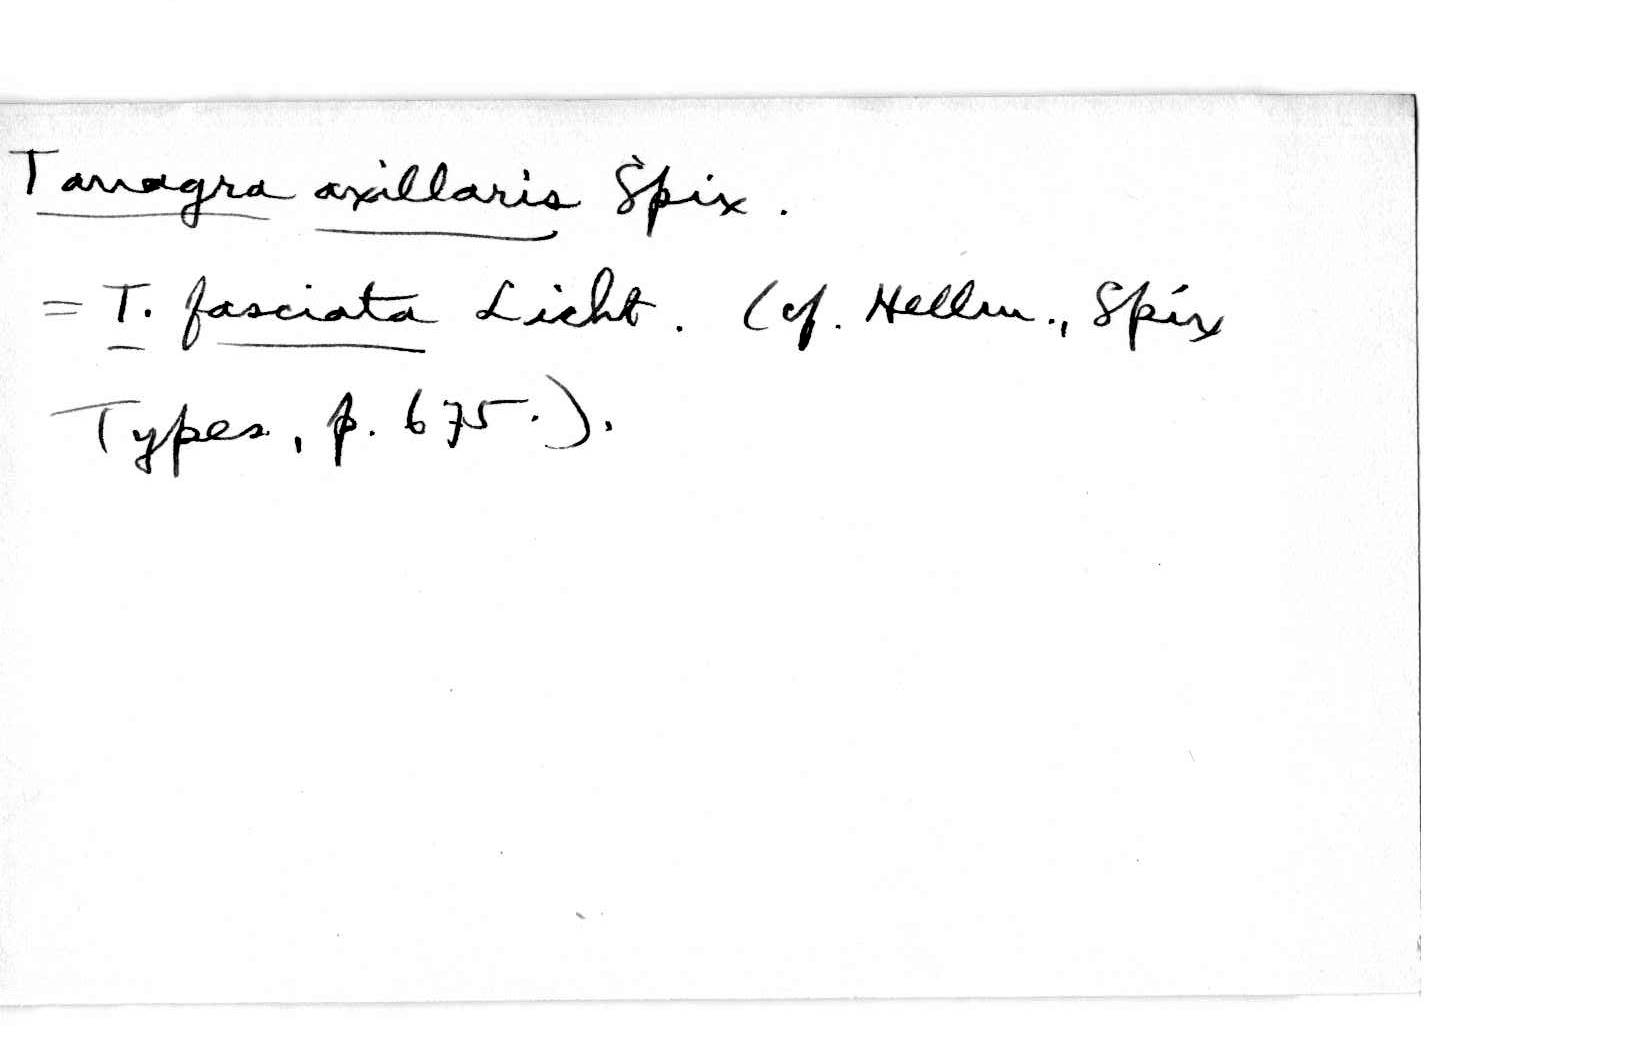 Tanagra axillaris Spix.
= T. fasciata Licht. (cf. Hellm., Spix
Types, p. 675.).